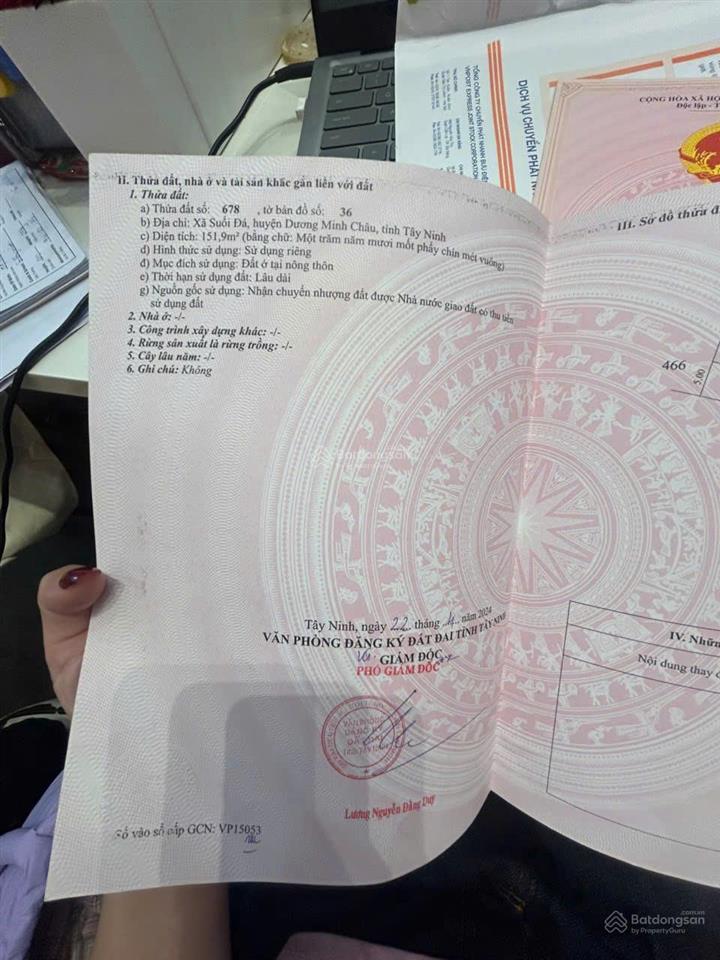 II. Thửa đất, nhà ở và tài sản khác gắn liền với đất
1. Thửa đất:
a) Thửa đất số: 678 , tờ bản đồ số: 36
b) Địa chỉ: Xã Suối Đá, huyện Dương Minh Châu, tỉnh Tây Ninh
c) Diện tích: 151,9m² (bằng chữ: Một trăm năm mươi mốt phẩy chín mét vuông)
d) Hình thức sử dụng: Sử dụng riêng
đ) Mục đích sử dụng: Đất ở tại nông thôn
e) Thời hạn sử dụng đất: Lâu dài
g) Nguồn gốc sử dụng: Nhận chuyển nhượng đất được Nhà nước giao đất có thu tiền
sử dụng đất
2. Nhà ở: -/-
3. Công trình xây dựng khác: -/-
4. Rừng sản xuất là rừng trồng: -/-
5. Cây lâu năm: -/-
6. Ghi chú: Không
Tây Ninh, ngày 22 tháng 4 năm 2024
VĂN PHÒNG ĐĂNG KÝ ĐẤT ĐAI TỈNH TÂY NINH
GIÁM ĐỐC
PHÓ GIÁM ĐỐC
Lương Nguyễn Đăng Duy
Số vào sổ cấp GCN: VP15053
III. Sơ đồ thửa đ
466
5.00
IV. Nhữn
Nội dung thay đ
CỘNG HÒA XÃ HỘ
Độc lập - T
TỔNG CÔNG TY CHUYỂN PHÁT NHANH BƯU ĐIỆ
VNPOST EXPRESS JOINT STOCK CORPORATION
DỊCH VỤ CHUYỂN PHÁT N
Batdongsan
by PropertyGuru
Batdongsan.com.vn
by PropertyGuru